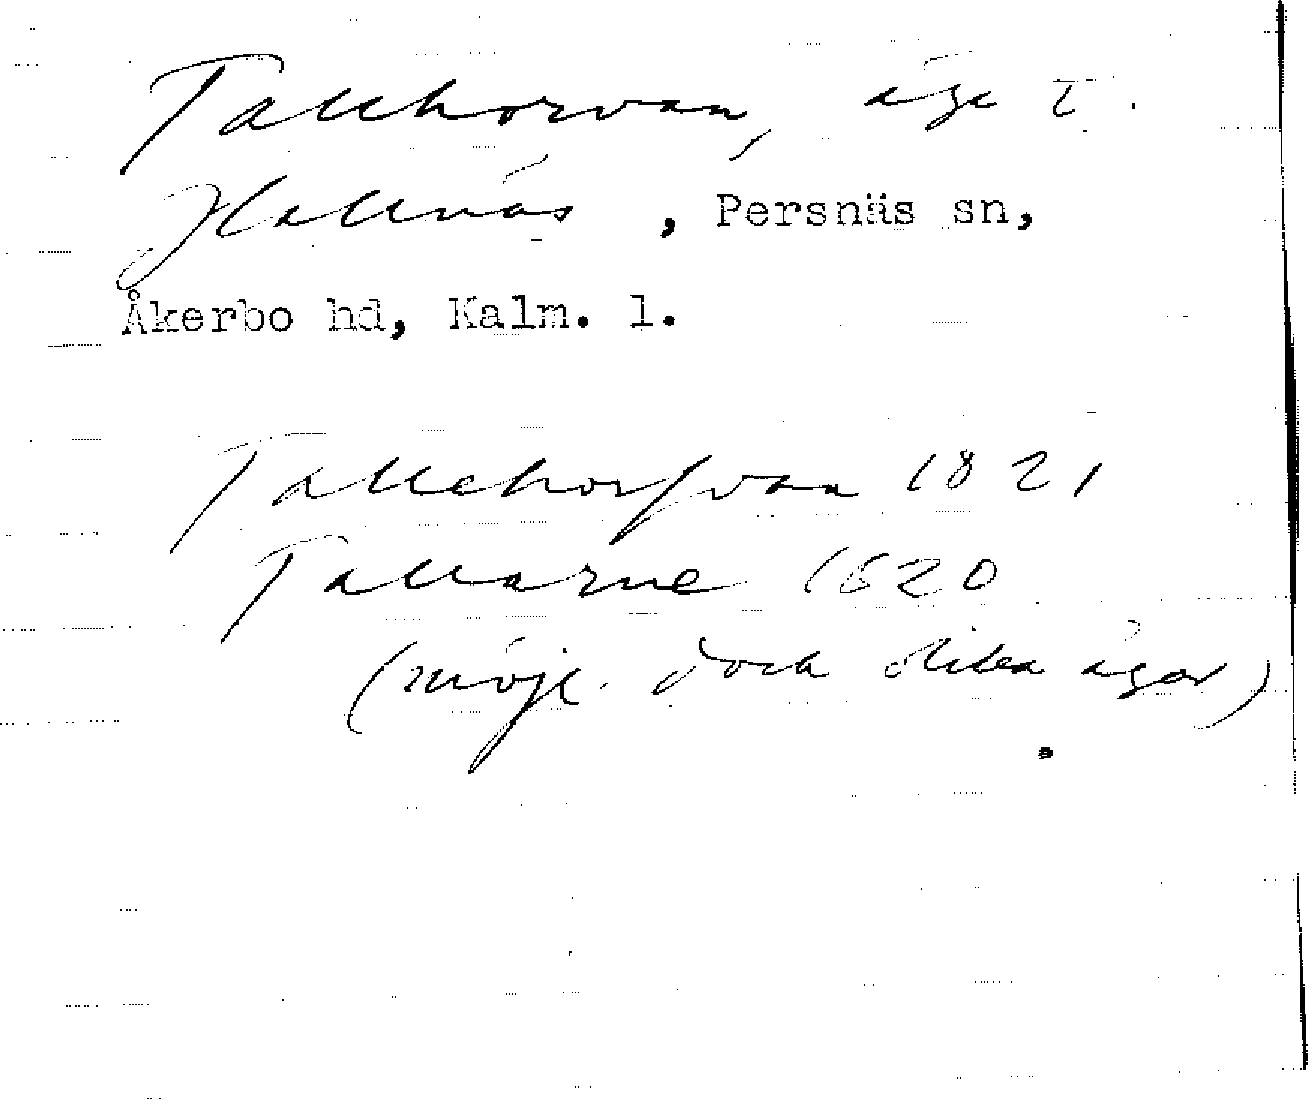 Tallhorvan, äga t.
Hallnäs, Persnäs sn,
Åkerbo hd, Kalm. l.
Tallehorfvan 1821
Tallarne 1820
(möjl. dock olika ägor)